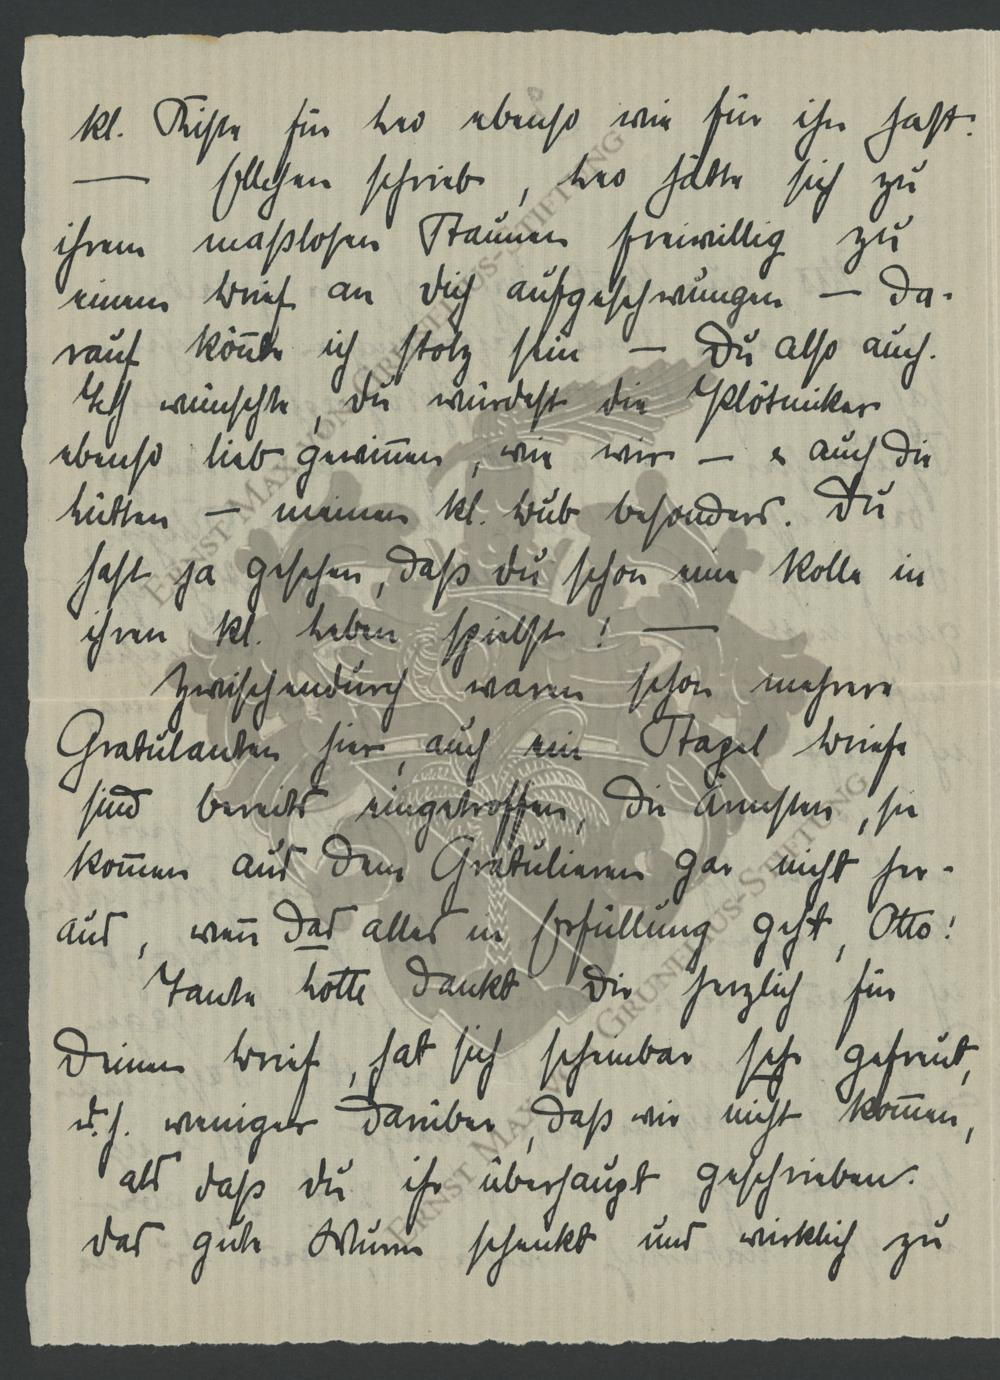 kl. Kiste für Leo ebenso wie für ihn hast.
— Ellchen schrieb, Leo hätte sich zu
ihrem maßlosen Staunen freiwillig zu
einem Brief an dich aufgeschwungen — da-
rauf könnte ich stolz sein — Du also auch.
Ich wünschte, du würdest die Klötniker
ebenso lieb gewinnen, wie wir — & auch die
Lütten — meinen kl. Bub besonders. Du
hast ja gesehen, daß du schon eine Rolle in
ihren kl. Leben spielst! —
Zwischendurch waren schon mehrere
Gratulanten hier, auch ein Stapel Briefe
sind bereits eingetroffen, die Ärmsten, sie
kom̄en aus dem Gratulieren gar nicht her-
aus, wen̄ das alles in Erfüllung geht, Otto!
Tante Lotte dankt Dir herzlich für
Deinen Brief, hat sich scheinbar sehr gefreut,
d.h. weniger darüber, daß wir nicht kom̄en,
als daß du ihr überhaupt geschrieben.
Das gute Wurm schenkt uns wirklich zu
ERNST MARLON GRUNELIUS-STIFTUNG
ERNST MARLON GRUNELIUS-STIFTUNG